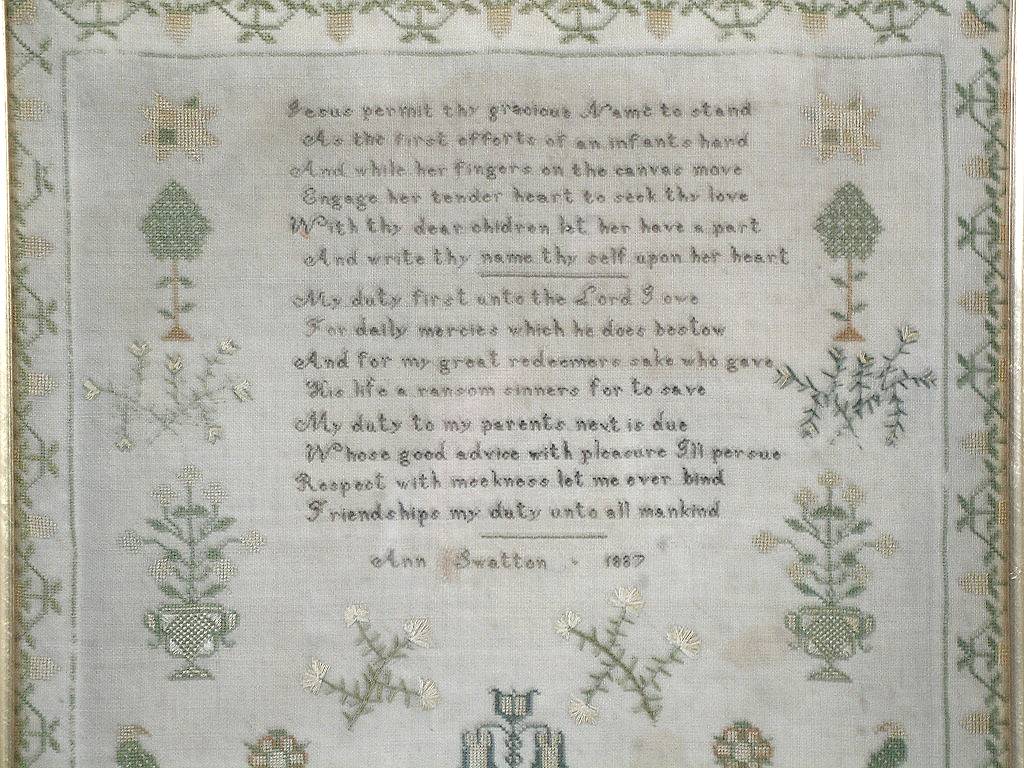 Jesus permit thy gracious Name to stand
As the first efforts of an infants hand
And while her fingers on the canvas move
Engage her tender heart to seek thy love
With thy dear children let her have a part
And write thy name thy self upon her heart
My duty first unto the Lord I owe
For daily mercies which he does bestow
And for my great redeemers sake who gave
His life a ransom sinners for to save
My duty to my parents next is due
Whose good advice with pleasure Ill persue
Respect with meekness let me ever bind
Friendships my duty unto all mankind
Ann Swatton